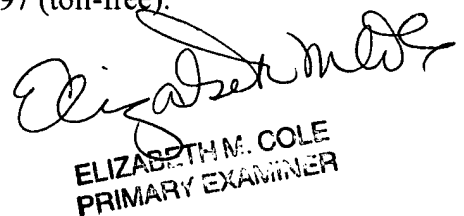 97 (toll-free).
Elizabeth M. Cole
ELIZABETH M. COLE
PRIMARY EXAMINER